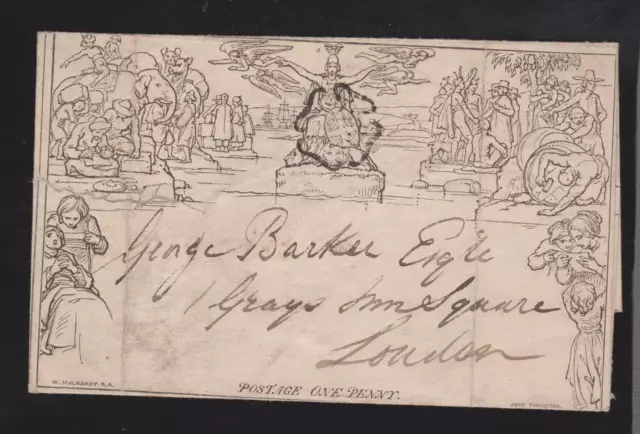 George Barker Esqre
1 Grays Inn Square
London
W. MULREADY. R.A.
POSTAGE ONE PENNY.
JOHN THOMPSON.